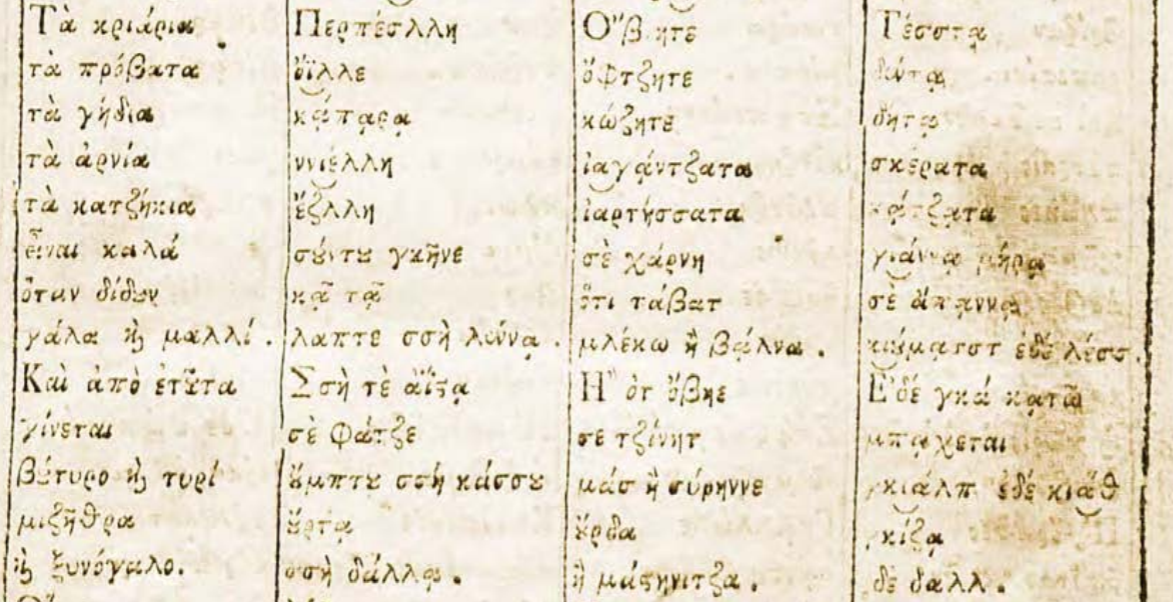 Τὰ κριάρια Περπέσλλη Ὄβητε Τέσστα
τὰ πρόβατα ὄϊλλε ὄφτζητε δώτα
τὰ γήδια κάπαρα κώζητε δήτα
τὰ ἀρνία ννιέλλη ἰαγάντζατα σκέρατα
τὰ κατζήκια ἔζλλη ἰαρτήσσατα κάτζατα
εἶναι καλὰ σύντυ γκῆνε σὲ χάρνη γιάννα μήρα
ὅταν δίδουν κᾳ̃ τᾳ̃ ὅτι τάβατ σὲ ἄπαννα
γάλα ϗ̀ μαλλί. λαπτε σσὴ λώνα. μλέκω ἢ βάλνα. κιώματστ ἐδὲ λέσσ.
Καὶ ἀπὸ ἐτȣ̃τα Σσὴ τὲ ἄϊςᾳ Ἢ ὀτ ὄβηε Ἐδέ γκά κατᾳ̃
γίνεται σὲ Φάτζε σε τζίνητ μπᾳχεται
βȣ́τυρο ϗ̀ τυρί ȣ̓́μπτȣ σσὴ κάσσȣ μάσ ἢ σύρηννε γκιάλπ ἐδὲ κιάθ
μιζήθρα ȣ̓́ρτᾳ ȣ̓́ρδα κίζᾳ
ϗ̀ ξυνόγαλο. σσὴ δάλλᾳ. ἢ μάςηνιτζα. δὲ δαλλ.